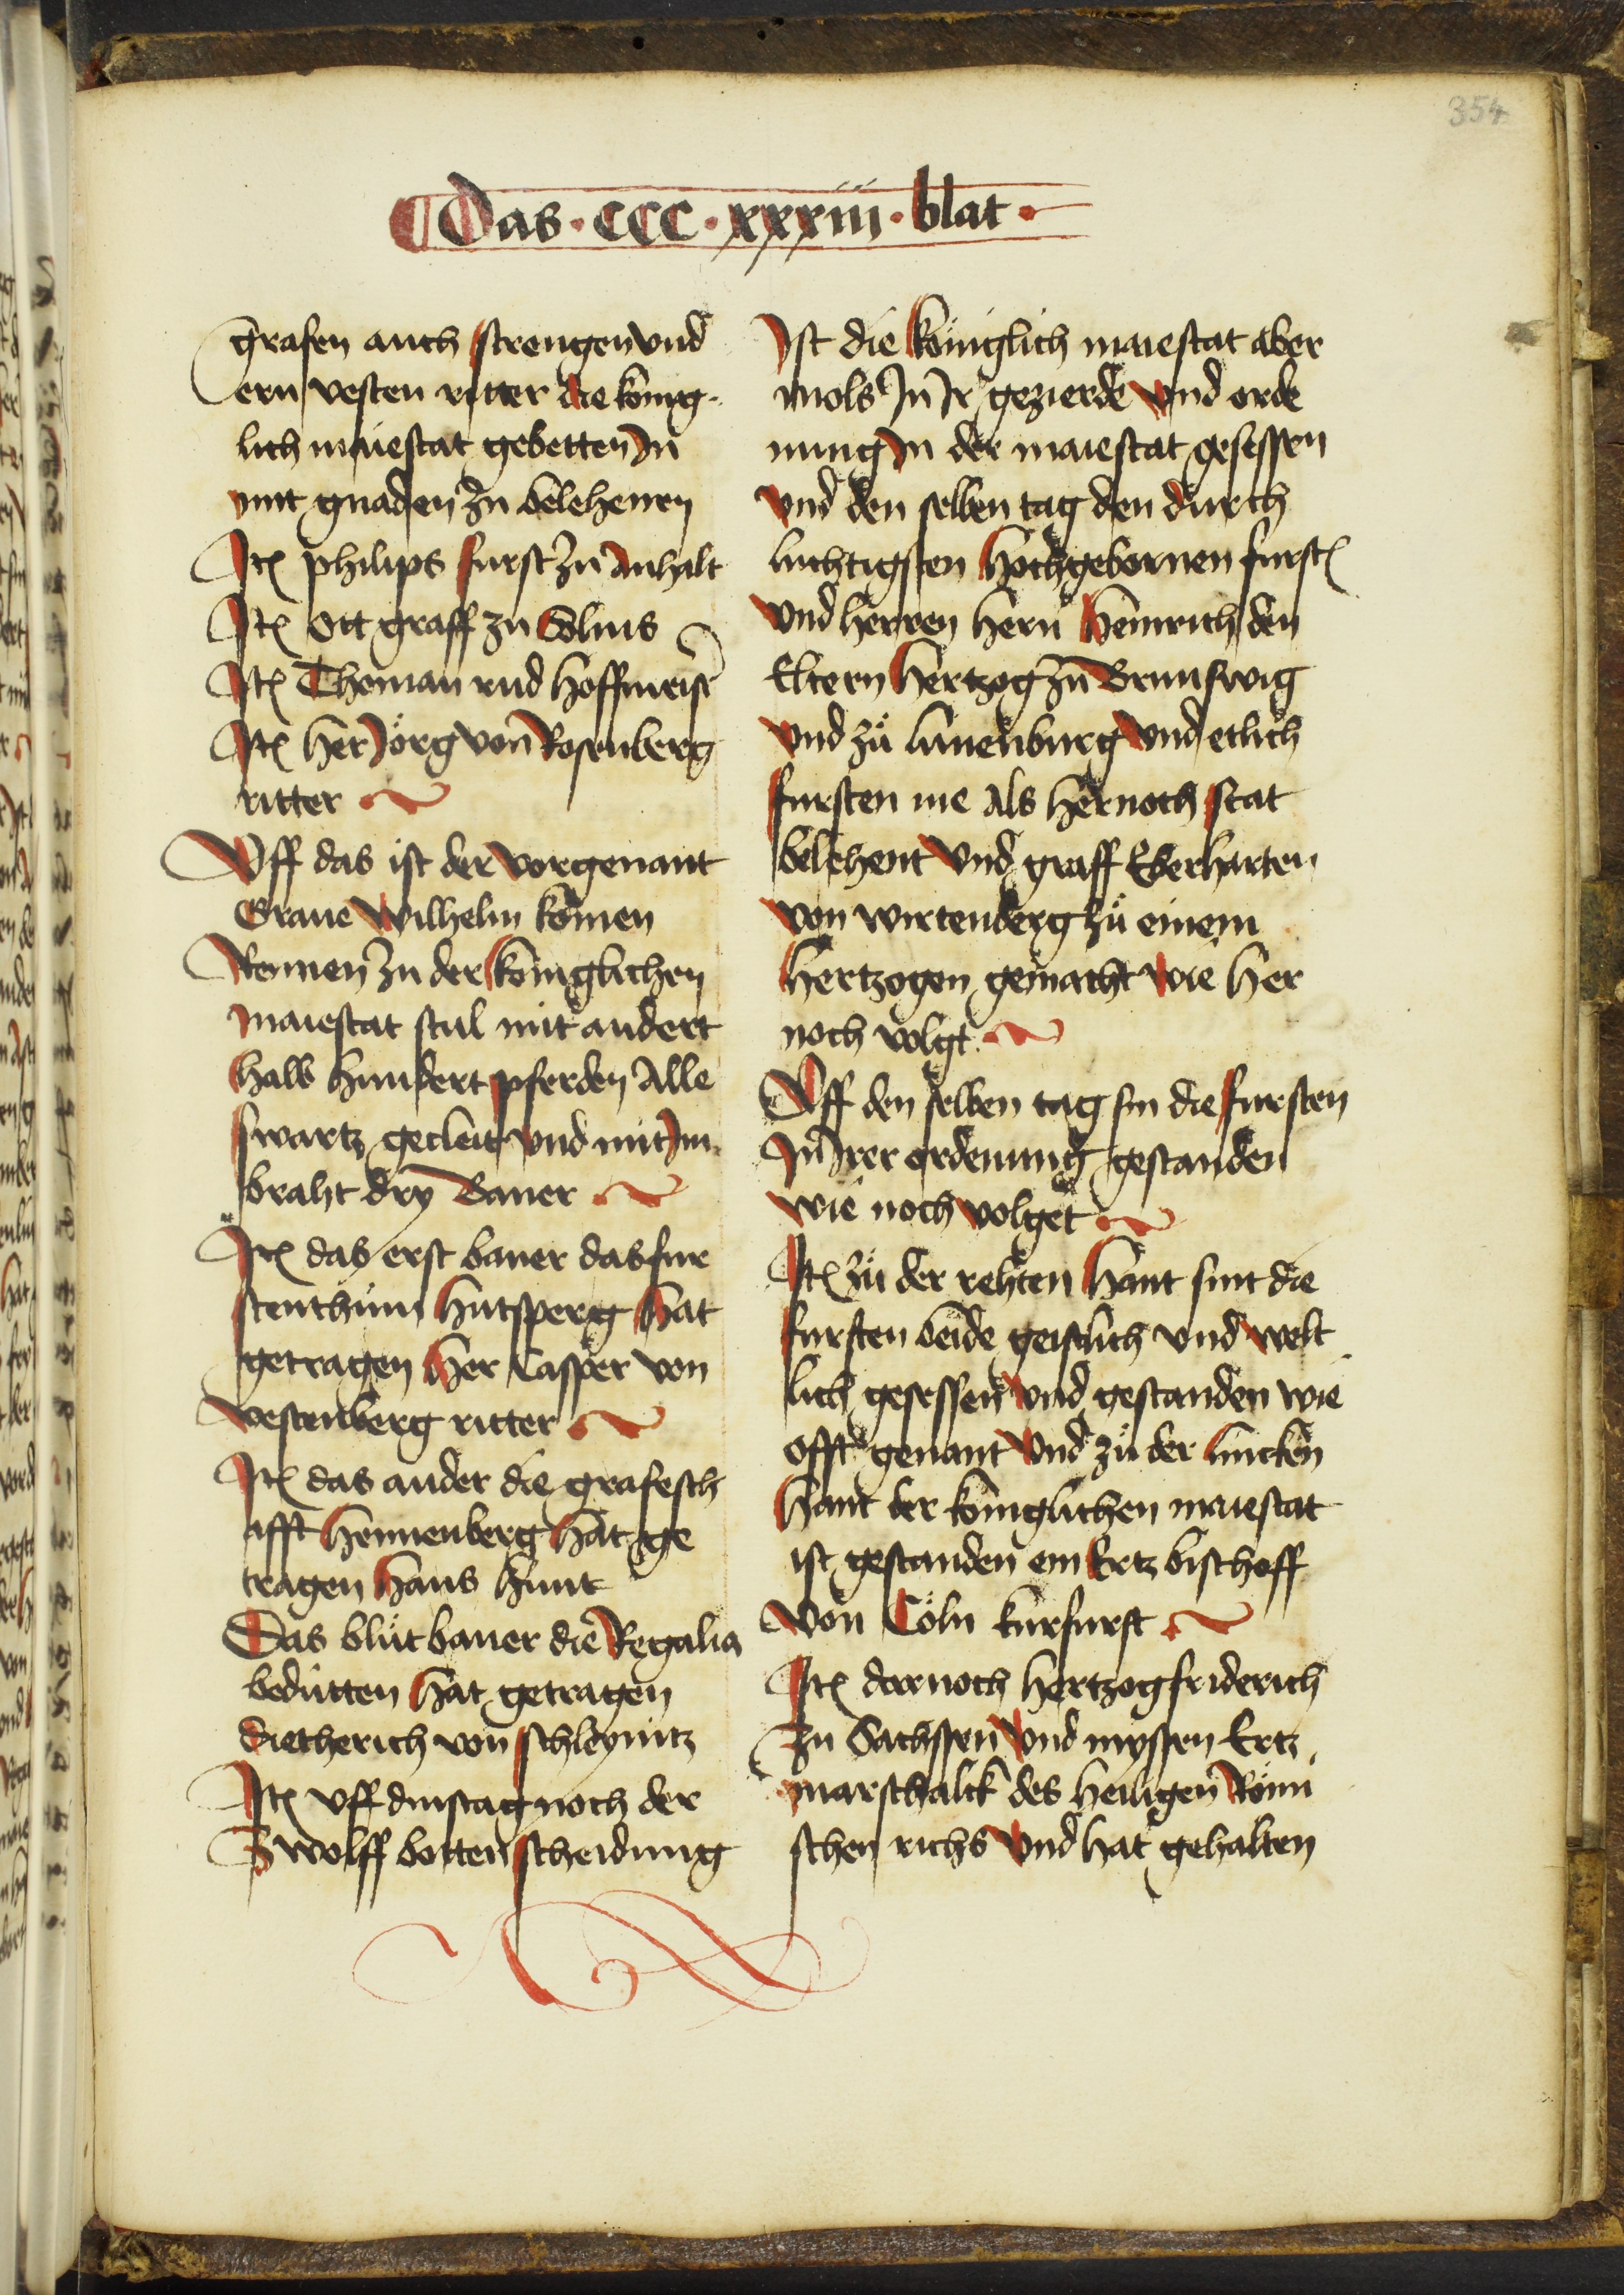 354
Das · CCC · xxxiii · blat ·
grafen auch strengen vnd
ern vesten ritter die konig-
lich maiestat gebetten Jn
mit gnaden zu belehenen
Jtē philips furst zu Anhalt
Jtē Ott graff zu Solms
Jtē Thoman rud hoffmeist̄
Jtē her Jörg von Rosenberg
ritter
Vff das ist der vorgenant
Graue Wilhelm komen
Rennen zu der koniglichen
maiestat stul mit andert
halb hundert pferden Alle
swartz gecleit vnd mit Jm
braht dry Baner
Jtē das erst baner das fur
stenthum hutsperg hat
getragen her Casper von
vestenberg ritter
Jtē das ander die grafesch
afft hennenberg hat ge
tragen hans hunt
Das blůt baner die Regalia
bedutten hat getragen
dietherich von schleynitz
Jtē vff dinstag noch der
Zwolff botten scheidung
Jst die königlich maiestat aber
mols Jn Jr gezierde vnd orde
nung Jn der maiestat gesessen
vnd den selben tag den durch
luchtigsten hochgebornen furstē
vnd herren hern heinrich den
Eltern hertzog zu Brunswig
vnd zů lunenburg vnd etlich
fursten me als hernoch stat
belehent vnd graff Eberharten
von wirtenberg zů einem
hertzogen gemacht wie her
noch volgt
Vff den selben tag sin die fursten
Jn Jrer ordenung gestanden
wie noch volget
Jtē zů der rehten hant sint die
fursten beide geistlich vnd welt
lich gesessen vnd gestanden wie
offt genant vnd zů der lincken
hant der koniglichen maiestat
ist gestanden ein Ertz bischoff
von Cöln kurfurst
Jtē dornoch hertzog friderich
zu Sachssen vnd myssen Ertz
marschalck des heiligen Römi
schen richs vnd hat gehalten